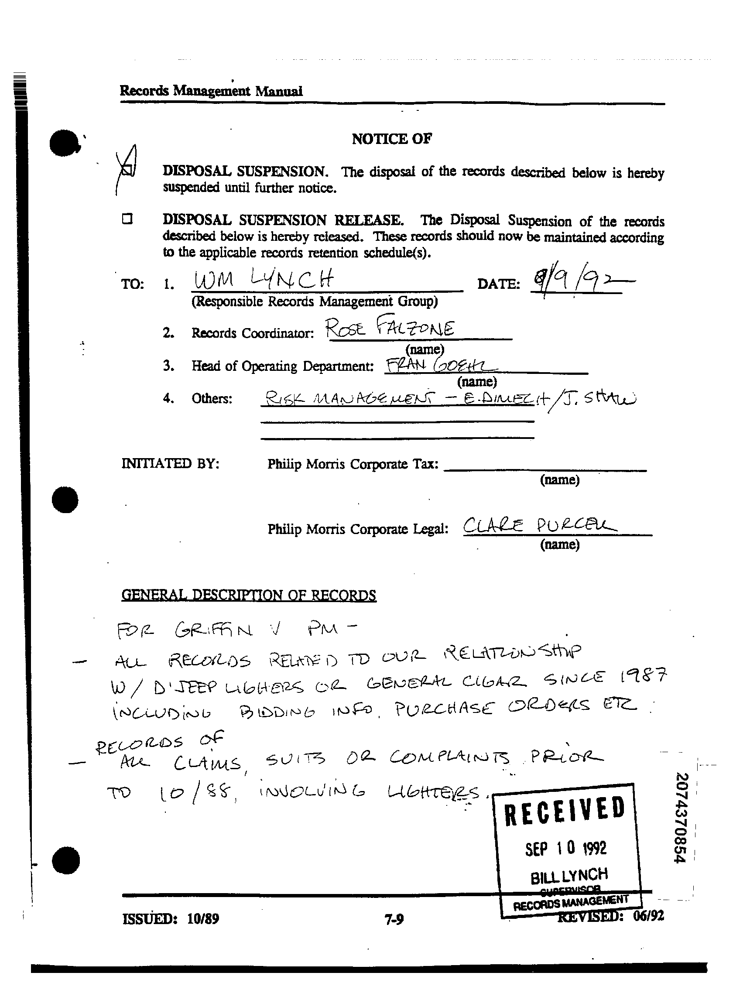 Records Management Manual
NOTICE OF
DISPOSAL SUSPENSION. The disposal of the records described below is hereby
suspended until further notice.
☐ DISPOSAL SUSPENSION RELEASE. The Disposal Suspension of the records
described below is hereby released. These records should now be maintained according
to the applicable records retention schedule(s).
TO: 1. WM LYNCH DATE: 9/9/92
(Responsible Records Management Group)
2. Records Coordinator: ROSE FALZONE
(name)
3. Head of Operating Department: FRAN GOEHL
(name)
4. Others: RISK MANAGEMENT - E. DIMECH/J. SHAW
INITIATED BY: Philip Morris Corporate Tax:
(name)
Philip Morris Corporate Legal: CLARE PURCELL
(name)
GENERAL DESCRIPTION OF RECORDS
FOR GRIFFIN V PM -
- ALL RECORDS RELATED TO OUR RELATIONSHIP
W/ D'JEEP LIGHERS OR GENERAL CIGAR SINCE 1987
INCLUDING BIDDING INFO, PURCHASE ORDERS ETC.
RECORDS OF
- ALL CLAIMS, SUITS OR COMPLAINTS PRIOR
TO 10/88, INVOLVING LIGHTERS.
RECEIVED
SEP 10 1992
BILL LYNCH
SUPERVISOR
RECORDS MANAGEMENT
2074370854
ISSUED: 10/89 7-9 REVISED: 06/92